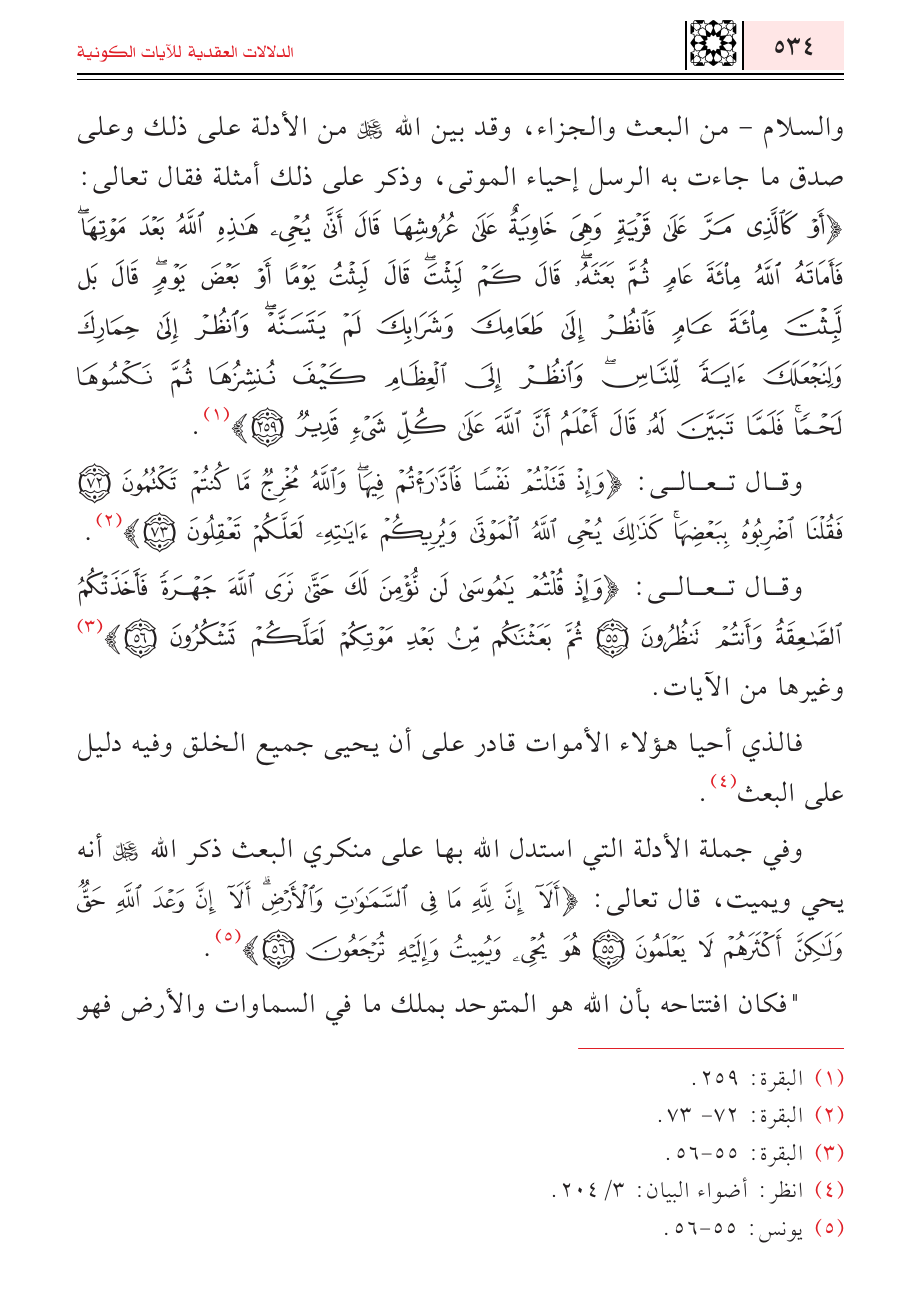 ٥٣٤
الدلالات العقدية للآيات الكونية
والسلام – من البعث والجزاء، وقد بين الله ﷻ من الأدلة على ذلك وعلى
صدق ما جاءت به الرسل إحياء الموتى، وذكر على ذلك أمثلة فقال تعالى:
﴿أَوۡ كَٱلَّذِى مَرَّ عَلَىٰ قَرۡيَةٖ وَهِىَ خَاوِيَةٌ عَلَىٰ عُرُوشِهَا قَالَ أَنَّىٰ يُحۡىِۦ هَٰذِهِ ٱللَّهُ بَعۡدَ مَوۡتِهَاۖ
فَأَمَاتَهُ ٱللَّهُ مِاْئَةَ عَامٖ ثُمَّ بَعَثَهُۥۖ قَالَ كَمۡ لَبِثۡتَۖ قَالَ لَبِثۡتُ يَوۡمًا أَوۡ بَعۡضَ يَوۡمٖۖ قَالَ بَل
لَّبِثۡتَ مِاْئَةَ عَامٖ فَٱنظُرۡ إِلَىٰ طَعَامِكَ وَشَرَابِكَ لَمۡ يَتَسَنَّهۡۖ وَٱنظُرۡ إِلَىٰ حِمَارِكَ
وَلِنَجۡعَلَكَ ءَايَةٗ لِّلنَّاسِۖ وَٱنظُرۡ إِلَى ٱلۡعِظَامِ كَيۡفَ نُنشِزُهَا ثُمَّ نَكۡسُوهَا
لَحۡمٗاۚ فَلَمَّا تَبَيَّنَ لَهُۥ قَالَ أَعۡلَمُ أَنَّ ٱللَّهَ عَلَىٰ كُلِّ شَىۡءٖ قَدِيرٞ ٢٥٩﴾(١).
وقال تعالى: ﴿وَإِذۡ قَتَلۡتُمۡ نَفۡسٗا فَٱدَّٰرَٰٔتُمۡ فِيهَاۖ وَٱللَّهُ مُخۡرِجٞ مَّا كُنتُمۡ تَكۡتُمُونَ ٧٢
فَقُلۡنَا ٱضۡرِبُوهُ بِبَعۡضِهَاۚ كَذَٰلِكَ يُحۡىِ ٱللَّهُ ٱلۡمَوۡتَىٰ وَيُرِيكُمۡ ءَايَٰتِهِۦ لَعَلَّكُمۡ تَعۡقِلُونَ ٧٣﴾(٢).
وقال تعالى: ﴿وَإِذۡ قُلۡتُمۡ يَٰمُوسَىٰ لَن نُّؤۡمِنَ لَكَ حَتَّىٰ نَرَى ٱللَّهَ جَهۡرَةٗ فَأَخَذَتۡكُمُ
ٱلصَّٰعِقَةُ وَأَنتُمۡ تَنظُرُونَ ٥٥ ثُمَّ بَعَثۡنَٰكُم مِّنۢ بَعۡدِ مَوۡتِكُمۡ لَعَلَّكُمۡ تَشۡكُرُونَ ٥٦﴾(٣)
وغيرها من الآيات.
فالذي أحيا هؤلاء الأموات قادر على أن يحيى جميع الخلق وفيه دليل
على البعث(٤).
وفي جملة الأدلة التي استدل الله بها على منكري البعث ذكر الله ﷻ أنه
يحي ويميت، قال تعالى: ﴿أَلَآ إِنَّ لِلَّهِ مَا فِى ٱلسَّمَٰوَٰتِ وَٱلۡأَرۡضِۗ أَلَآ إِنَّ وَعۡدَ ٱللَّهِ حَقّٞ
وَلَٰكِنَّ أَكۡثَرَهُمۡ لَا يَعۡلَمُونَ ٥٥ هُوَ يُحۡىِۦ وَيُمِيتُ وَإِلَيۡهِ تُرۡجَعُونَ ٥٦﴾(٥).
"فكان افتتاحه بأن الله هو المتوحد بملك ما في السماوات والأرض فهو
(١) البقرة: ٢٥٩.
(٢) البقرة: ٧٢– ٧٣.
(٣) البقرة: ٥٥–٥٦.
(٤) انظر: أضواء البيان: ٣/ ٢٠٤.
(٥) يونس: ٥٥–٥٦.